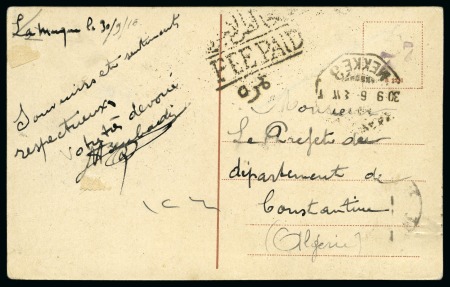 La Mecque le 30/9/16
Souvenirs et sentiments
respectueux
votre dévoué
FEE PAID
MEKKE
30 9 6
Monsieur
Le Préfet du
département de
Constantine
(Algérie)